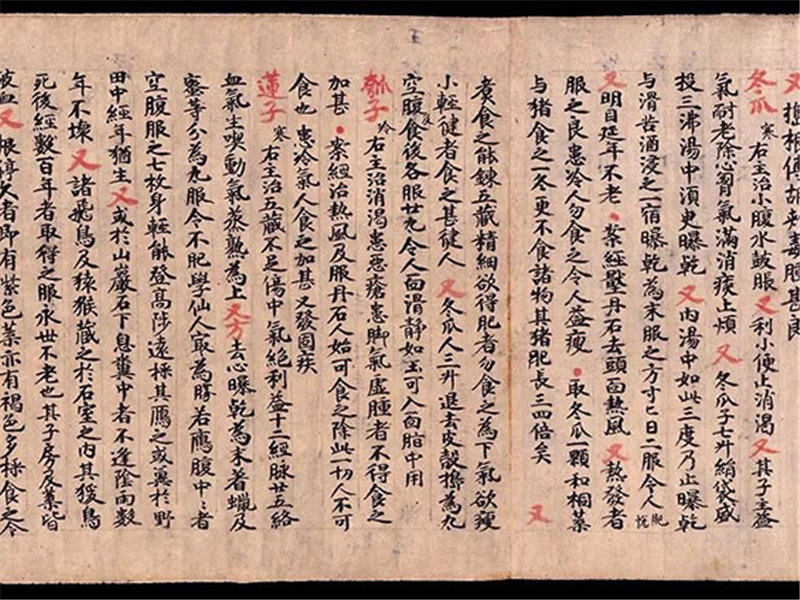 又 擣根傅胡刺毒腫甚良
冬瓜 寒 右主治小腹水鼓脹 又 利小便止消渴 又 其子主益
氣耐老除心胷氣滿消痰止煩 又 冬瓜子七升絹袋盛
投三沸湯中須臾曝乾 又 內湯中如此三度乃止曝乾
与清苦酒浸之一宿曝乾為末服之方寸匕日二服令人肥悅
又 明目延年不老 案經壓丹石去頭面熱風 又 熱發者
服之良患冷人勿食之令人益瘦 取冬瓜一顆和桐葉
与猪食之一冬更不食諸物其猪肥長三四倍矣 又
煮食之能鍊五藏精細欲得肥者勿食之為下氣欲瘦
小輕健者食之甚健人 又 冬瓜人三升退去皮殼擣為丸
空腹及食後各服廿丸令人面滑靜如玉可入面脂中用
瓠子 冷 右主治消渴患惡瘡患脚氣虛腫者不得食之
加甚 案經治熱風及服丹石人始可食之除此一切人不可
食也 患冷氣人食之加甚 又發固疾
蓮子 寒 右主治五藏不足傷中氣絕利益十二經脉廿五絡
血氣生喫動氣蒸熟為上 又方 去心曝乾為末著蠟及
蜜等分為丸服令不肥學仙人冣為勝若鴈腹中者
空腹服之七枚身輕能登高陟遠採其鴈之或糞於野
田中經年猶生 又 或於山巖石下息糞中者不逢陰雨數
年不壞 又 諸飛鳥及猿猴藏之於石室之內其猨鳥
死後經數百年者取得之服永世不老也其子房及葉皆
破血 又 根停久者即有紫色葉亦有褐色多採食之令